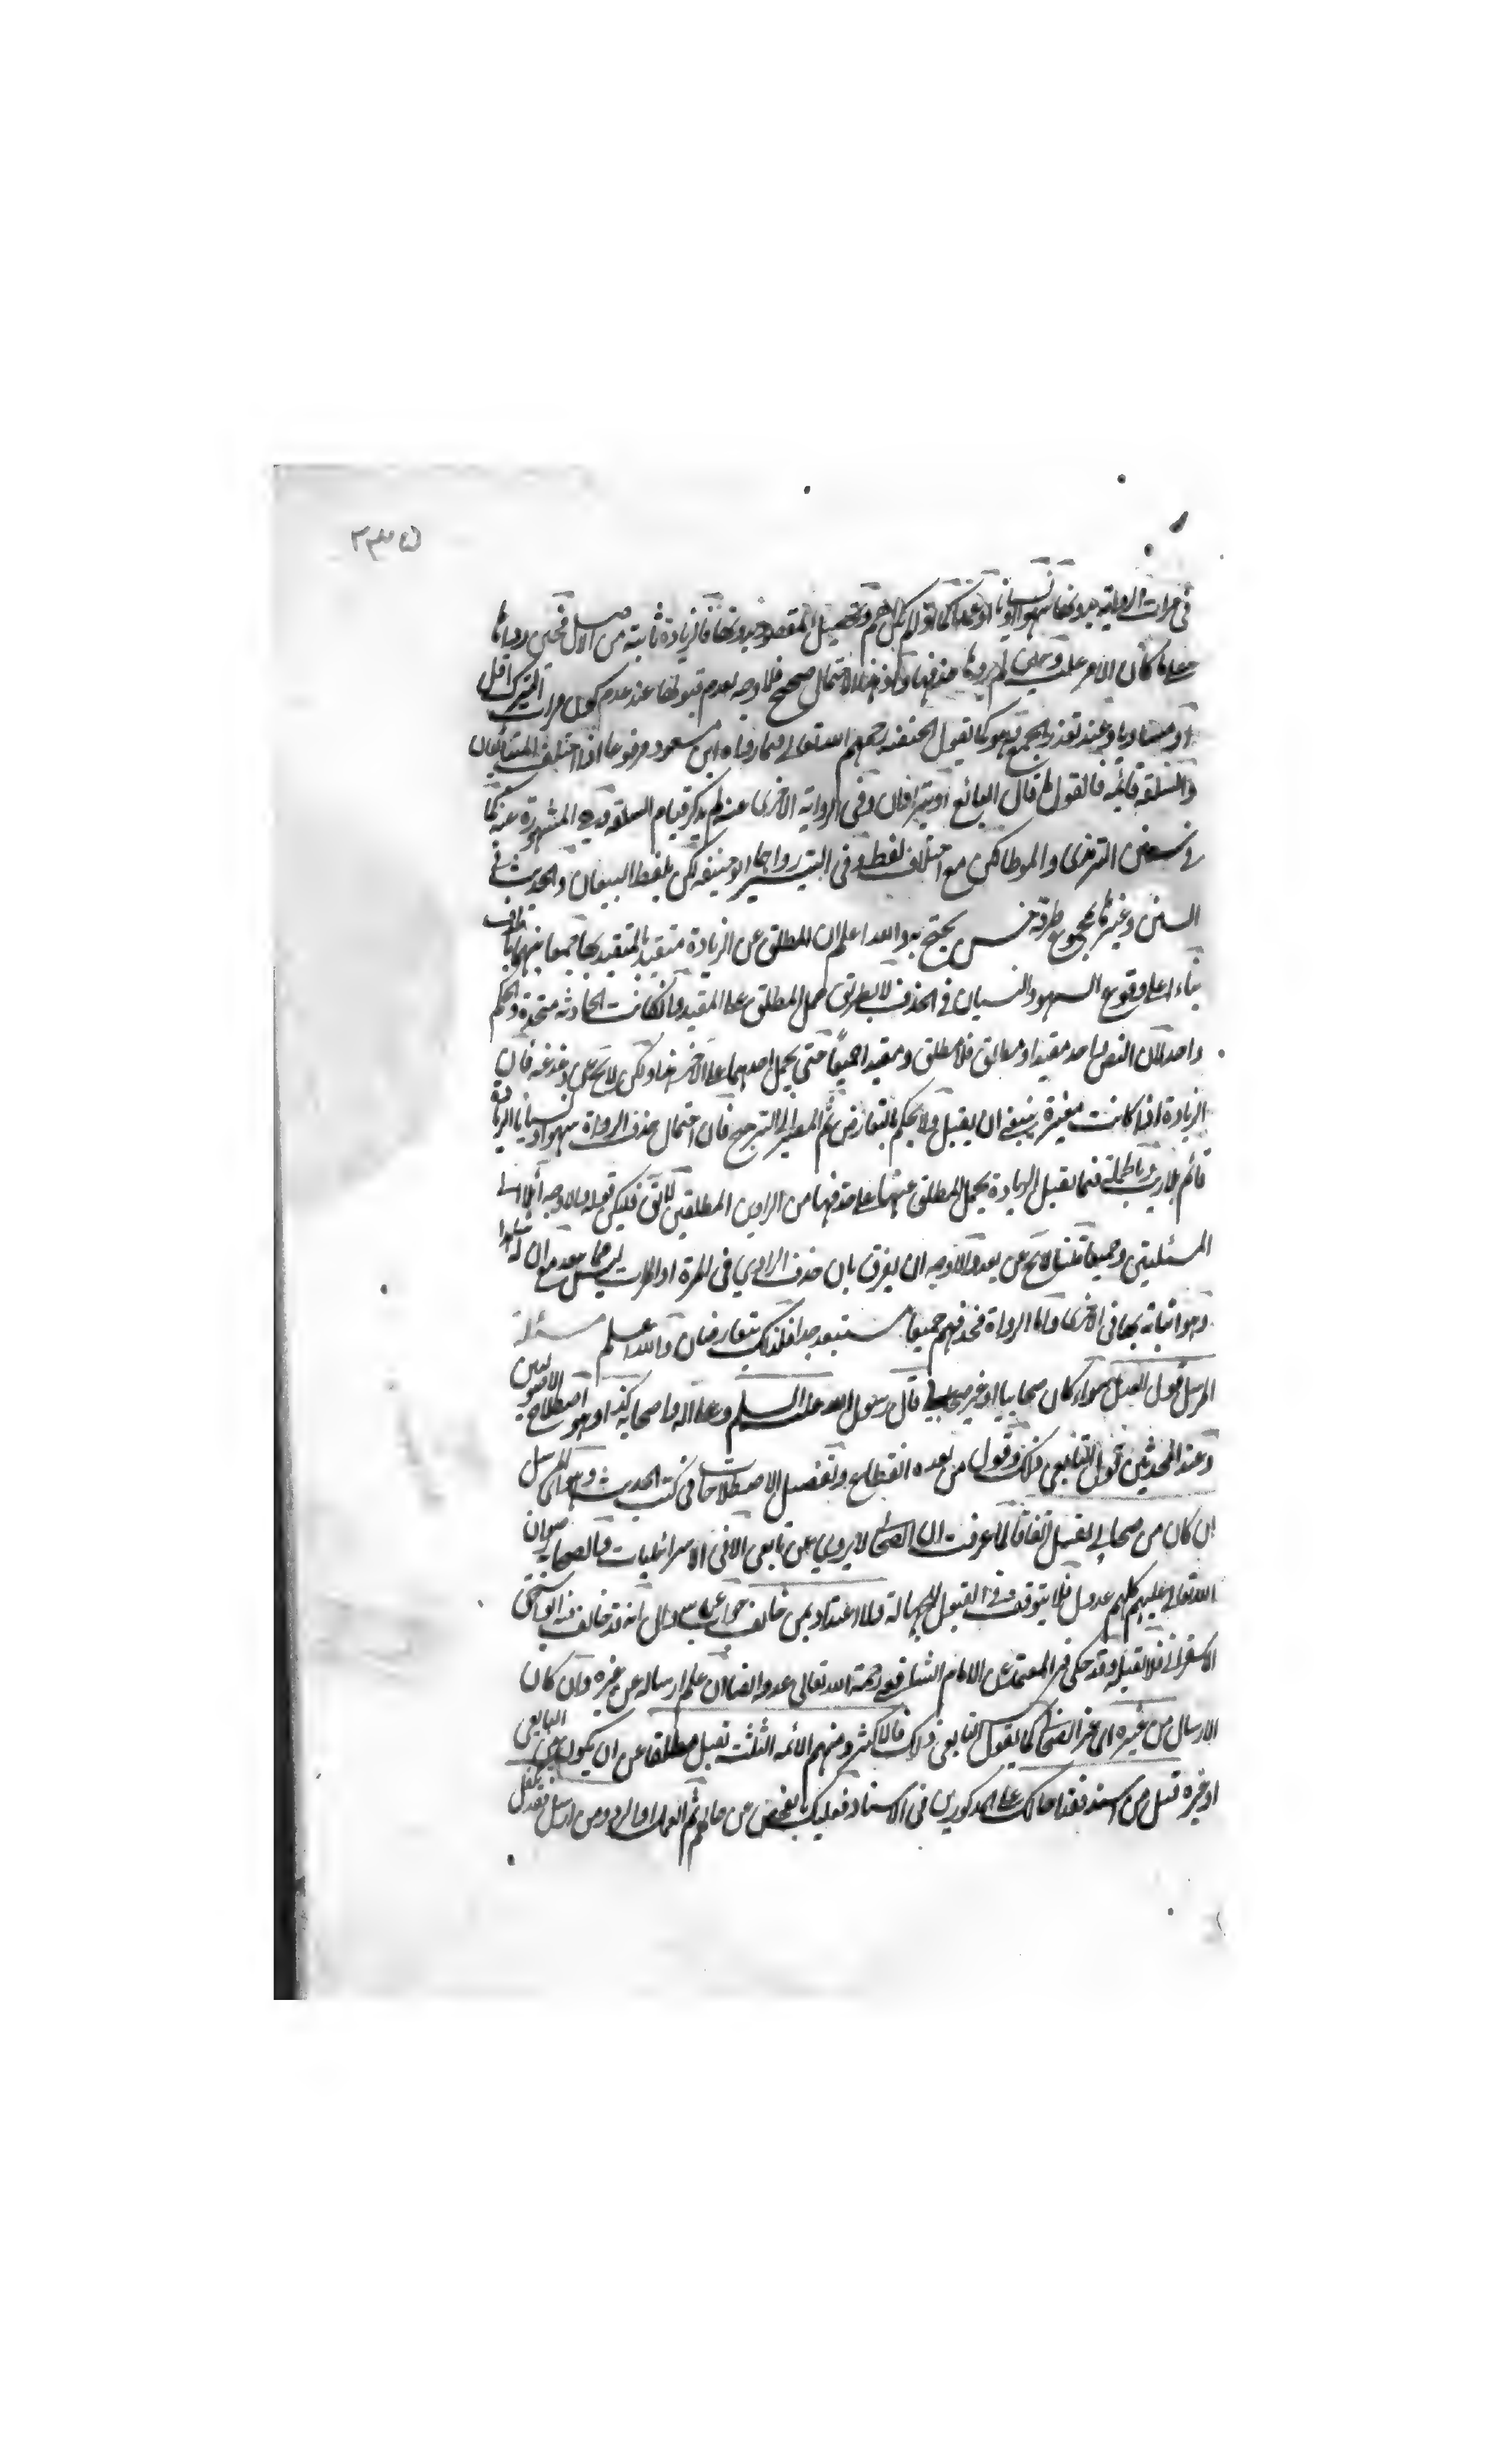 ٢٣٥
في مرات الرواية بدونها سهوا او نسيانا او عمدا كما تقول لم يكن اهم وتحصيل المقصود بدونها فالزيادة ثابتة من الاصل فحين رواها
على ما كان الامر عليه وحين لم يروها حذفها وكون هذا الاحتمال صحيح فلا وجه لعدم قبولها عند عدم كون مرات الترك اقل
او مساويا وعند تعذر الجمع وهو كما تقول الحنفية رحمهم الله تعالى فيما رواه ابن مسعود مرفوعا اذا اختلف المتبايعان
والسلعة قائمة فالقول ما قال البائع او يترادان وفي الرواية الاخرى عنه لم يذكر قيام السلعة وهي المشهورة عنه كما
في سنن الترمذي والموطا لكن مع اختلاف لفظ وفي التيسير رواها ابو حنيفة لكن بلفظ البيعان والحديث في
السنن وغيرها مجموع طرقه حسن يحتج به والله اعلم ان المطلق عن الزيادة متقيد بالمتقيد بها جمعا بينهما
بناء على وقوع السهو والنسيان في الحذف لا بطريق حمل المطلق على المقيد وان كانت الحادثة متحدة والحكم
واحد لان النص واحد مقيد او مطلق فلا مطلق ومقيد جميعا حتى يحمل احدهما على الآخر هذا ولكن لائح على دغدغة فان
الزيادة اذا كانت مغيرة ينبغي ان يقبل ولا يحكم بالتعارض ثم المصير الى الترجيح فان احتمال حذف الرواة سهوا او نسيانا الزيادة
قائم بلا ريب فيما تقبل الزيادة يحمل المطلق عنها على حذفها من الراوين المطلقين
المسئلتين وجميعا والاوجه ان يفرق بان حذف الراوي في المرة او المرات ليس مع ان له
وهو اثباته بها في الاخرى واما الرواة فحذفهم جميعا مستبعد جدا فلذلك يتعارضان والله اعلم مسئلة
المرسل قول العدل سواء كان صحابيا او غير صحابي قال رسول الله عليه السلم وعلى اله واصحابه كذا وهو اصطلاح الاصوليين
وعند المحدثين قول التابعي ذلك وقول من بعده انقطاع وتفصيل الاصطلاحات في كتب الحديث وهو اى المرسل
ان كان من صحابي يقبل اتفاقا لما عرفت ان الصحابي لا يروي عن تابعي الا في الاسرائيليات والصحابة رضوان
الله تعالى عليهم كلهم عدول فلا يتوقف في القبول للجهالة ولا اعتداد بمن خالف جواب عن سوال انه قد خالف فيه ابو اسحق
الاسفرائني فلا يقبله وقد حكى في المعتمد عن الامام الشافعي رحمة الله تعالى عدوه ايضا ان علم ارساله عن غيره وان كان
الارسال من غيره اى غير الصحابي كما يقول التابعي ذلك فالاكثر ومنهم الائمة الثلثة تقبل مطلقا عن ان يكون التابعي
او غيره قيل من اسند فقد احالك على المذكورين في الاسناد فعليك بالفحص عن حالهم ثم العمل او الرد ومن ارسل فقد تكفل